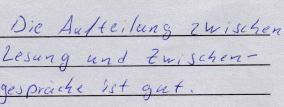 Die Aufteilung zwischen
Lesung und Zwischen-
gespräche ist gut.